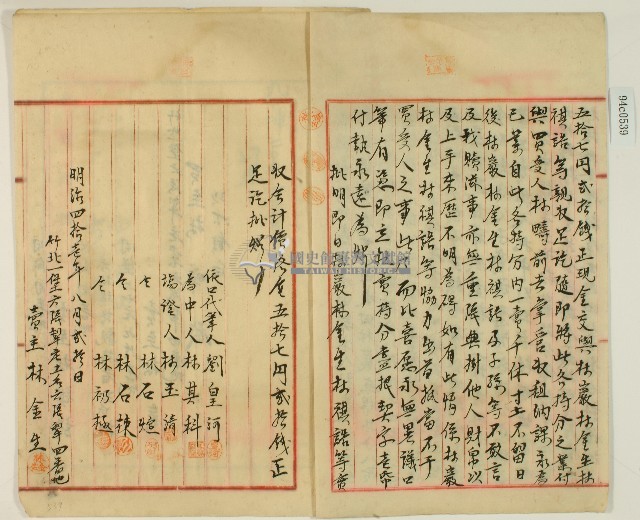 五拾七円貳拾錢正現金交與林巖林金生林
祺語等親收足訖隨即將此各持分之業付
與買受人林疇前去掌管收租納課永為
己業自此各持分內一賣千休寸土不留日
後林巖林金生林祺語及子孫等不敢言
及找贖滋事亦無重張典掛他人財帛以
及上手來歷不明為碍如有此情係林巖
林金生林祺語等協力出首抵當不干
買受人之事此而此喜愿永無異議口
筆有憑即立杜賣持分盡根契字壹帋
付執永遠為炤
批明即日林巖林金生林祺語等實
收會計價各金五拾七円貳拾錢正
足訖批炤
依口代筆人劉皇河
為中人林其科
場證人林玉清
仝 林石
仝 林石
仝 林初極
明治四拾老年八月貳拾日
竹北一堡六張犂庄土名六張犂四番地
賣主林金生
94c0539
國史館臺灣文獻館